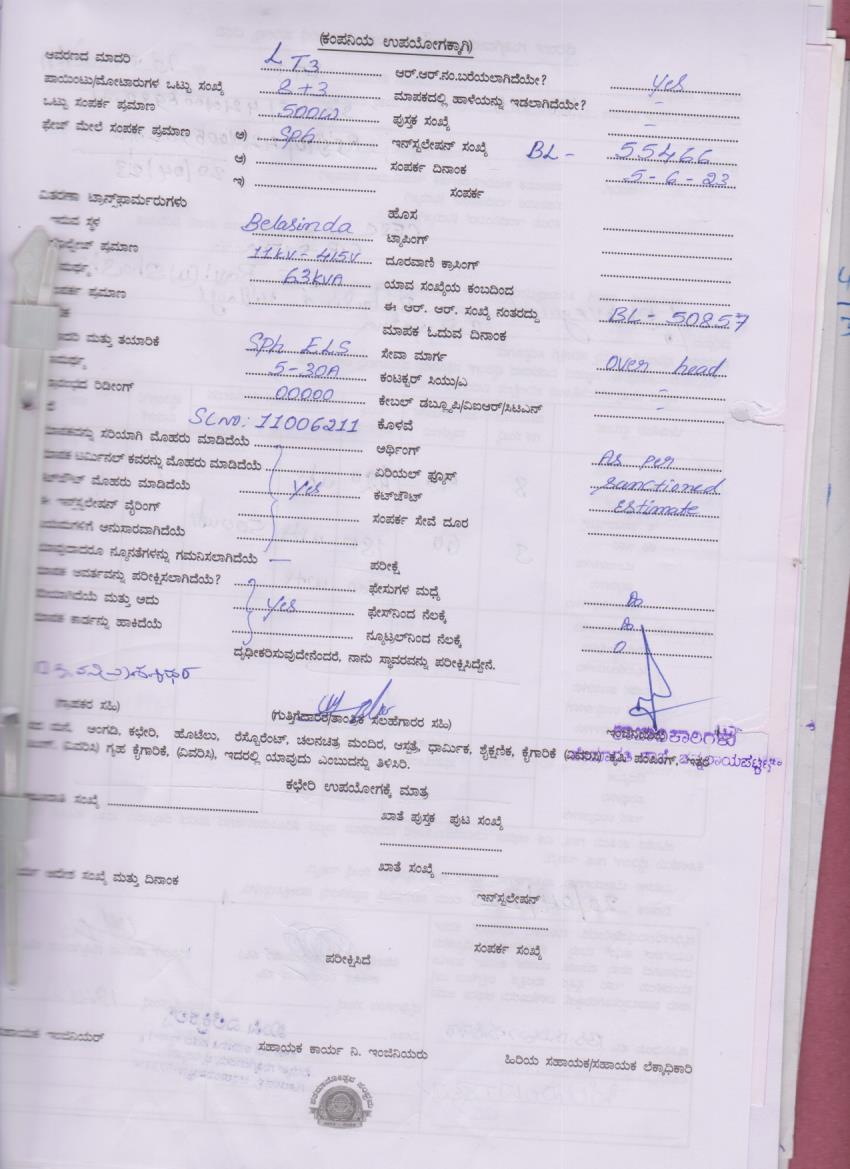 (ಕಂಪನಿಯ ಉಪಯೋಗಕ್ಕಾಗಿ)
ಆವರಣದ ಮಾದರಿ LT3 ಆರ್.ಆರ್.ನಂ.ಬರೆಯಲಾಗಿದೆಯೇ? yes
ಪಾಯಿಂಟು/ಮೋಟಾರುಗಳ ಒಟ್ಟು ಸಂಖ್ಯೆ 2+3 ಮಾಪಕದಲ್ಲಿ ಹಾಳೆಯನ್ನು ಇಡಲಾಗಿದೆಯೇ? -
ಒಟ್ಟು ಸಂಪರ್ಕ ಪ್ರಮಾಣ 500W ಪುಸ್ತಕ ಸಂಖ್ಯೆ -
ಫೇಜ್ ಮೇಲೆ ಸಂಪರ್ಕ ಪ್ರಮಾಣ ಅ) Sph ಇನ್‌ಸ್ಟಲೇಷನ್ ಸಂಖ್ಯೆ BL - 55466
ಆ) ಸಂಪರ್ಕ ದಿನಾಂಕ 5-6-23
ಇ) ಸಂಪರ್ಕ
ವಿತರಣಾ ಟ್ರಾನ್ಸ್‌ಫಾರ್ಮರುಗಳು ಹೊಸ
ಇರುವ ಸ್ಥಳ Belasinda ಟ್ಯಾಪಿಂಗ್
ಪ್ರಮಾಣ 11kV-415V ದೂರವಾಣಿ ಕ್ರಾಸಿಂಗ್
63kVA ಯಾವ ಸಂಖ್ಯೆಯ ಕಂಬದಿಂದ
ಪ್ರಮಾಣ ಈ ಆರ್. ಆರ್. ಸಂಖ್ಯೆ ನಂತರದ್ದು BL-50857
ಮಾಪಕ ಓದುವ ದಿನಾಂಕ
ಮತ್ತು ತಯಾರಿಕೆ Sph ELS ಸೇವಾ ಮಾರ್ಗ over head
5-30A ಕಂಟಕ್ಟರ್ ಸಿಯು/ಎ -
ರಿಡೀಂಗ್ 00000 ಕೇಬಲ್ ಡಬ್ಲ್ಯೂಪಿ/ವಿಐಆರ್/ಸಿಟಿಎನ್ -
SL NO: 11006211 ಕೊಳವೆ
ಸರಿಯಾಗಿ ಮೊಹರು ಮಾಡಿದೆಯೆ ಅರ್ಥಿಂಗ್ As per
ಟರ್ಮಿನಲ್ ಕವರನ್ನು ಮೊಹರು ಮಾಡಿದೆಯೆ ಏರಿಯಲ್ ಫ್ಯೂಸ್ sanctioned
ಮೊಹರು ಮಾಡಿದೆಯೆ yes ಕಟ್‌ಔಟ್ Estimate
ಈ ಇನ್‌ಸ್ಟಲೇಷನ್ ವೈರಿಂಗ್ ಸಂಪರ್ಕ ಸೇವೆ ದೂರ
ಅನುಸಾರವಾಗಿದೆಯೆ
ನ್ಯೂನತೆಗಳನ್ನು ಗಮನಿಸಲಾಗಿದೆಯೆ - ಪರೀಕ್ಷೆ
ಆವರ್ತವನ್ನು ಪರೀಕ್ಷಿಸಲಾಗಿದೆಯೆ? ಫೇಸುಗಳ ಮಧ್ಯೆ
ಮತ್ತು ಅದು yes ಫೇಸ್‌ನಿಂದ ನೆಲಕ್ಕೆ
ಮಾಪಕ ಕಾರ್ಡನ್ನು ಹಾಕಿದೆಯೆ ನ್ಯೂಟ್ರಲ್‌ನಿಂದ ನೆಲಕ್ಕೆ 0
ದೃಢೀಕರಿಸುವುದೇನೆಂದರೆ, ನಾನು ಸ್ಥಾವರವನ್ನು ಪರೀಕ್ಷಿಸಿದ್ದೇನೆ.
(ಗ್ರಾಹಕರ ಸಹಿ) (ಗುತ್ತಿಗೆದಾರರ/ತಾಂತ್ರಿಕ ಸಲಹೆಗಾರರ ಸಹಿ)
ಮನೆ, ಅಂಗಡಿ, ಕಛೇರಿ, ಹೊಟೆಲು, ರೆಸ್ಟೊರೆಂಟ್, ಚಲನಚಿತ್ರ ಮಂದಿರ, ಆಸ್ಪತ್ರೆ, ಧಾರ್ಮಿಕ, ಶೈಕ್ಷಣಿಕ, ಕೈಗಾರಿಕೆ (ವಿವರಿಸಿ) ಕೃಷಿ ಪಂಪಿಂಗ್, ಇತ್ತರೆ
(ವಿವರಿಸಿ) ಗೃಹ ಕೈಗಾರಿಕೆ, (ವಿವರಿಸಿ, ಇದರಲ್ಲಿ ಯಾವುದು ಎಂಬುದನ್ನು ತಿಳಿಸಿರಿ.
ಕಛೇರಿ ಉಪಯೋಗಕ್ಕೆ ಮಾತ್ರ
ಸಂಖ್ಯೆ ಖಾತೆ ಪುಸ್ತಕ ಪುಟ ಸಂಖ್ಯೆ
ಖಾತೆ ಸಂಖ್ಯೆ
ಆದೇಶ ಸಂಖ್ಯೆ ಮತ್ತು ದಿನಾಂಕ ಇನ್‌ಸ್ಟಲೇಷನ್
ಸಂಪರ್ಕ ಸಂಖ್ಯೆ
ಪರೀಕ್ಷಿಸಿದೆ
ಸಹಾಯಕ ಇಂಜಿನಿಯರ್ ಸಹಾಯಕ ಕಾರ್ಯ ನಿ. ಇಂಜಿನಿಯರು ಹಿರಿಯ ಸಹಾಯಕ/ಸಹಾಯಕ ಲೆಕ್ಕಾಧಿಕಾರಿ